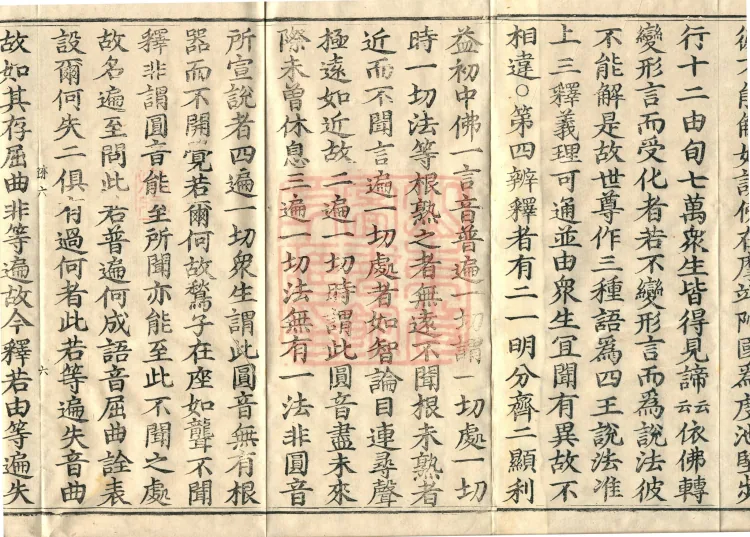 行十二由旬七萬衆生皆得見諦云云依佛轉
變形言而受化者若不變形言而爲說法彼
不能解是故世尊作三種語爲四王說法准
上三釋義理可通並由衆生宜聞有異故不
相違○第四辨釋者有二一明分齊二顯利
益初中佛一言音普遍一切謂一切處一切
時一切法等根熟之者無遠不聞根未熟者
近而不聞言遍一切處者如智論目連尋聲
極遠如近故二遍一切時謂此圓音盡未來
際未曾休息三遍一切法無有一法非圓音
所宣說者四遍一切衆生謂此圓音無有根
器而不開覺若爾何故鶖子在座如聾不聞
釋非謂圓音能至所聞亦能至此不聞之處
故名遍至問此若普遍何成語音屈曲詮表
設爾何失二俱有過何者此若等遍失音曲
疏六 六
故如其存屈曲非等遍故今釋若由等遍失